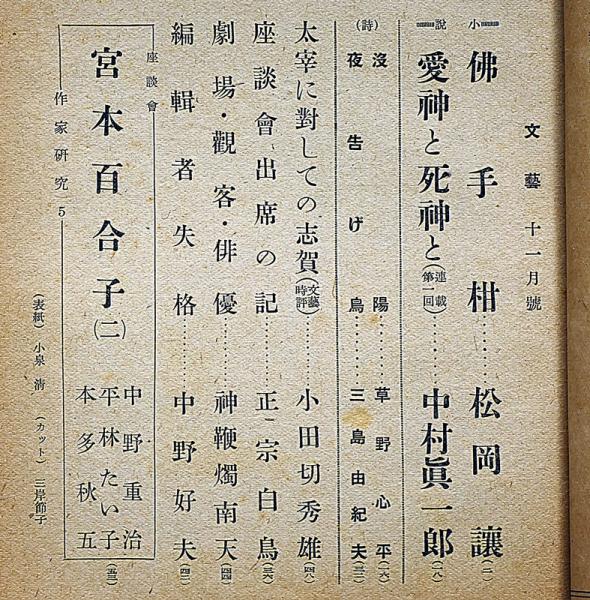 文藝 十一月號
小說
佛手柑……松岡讓(二)
愛神と死神と(連載第一回)……中村眞一郎(一八)
(詩)
沒陽……草野心平(一六)
夜告げ鳥……三島由紀夫(三二)
太宰に對しての志賀(文藝時評)……小田切秀雄(四八)
座談會出席の記……正宗白鳥(三六)
劇場・觀客・俳優……神鞭燭南天(四四)
編輯者失格……中野好夫(四二)
座談會
宮本百合子(二)
中野重治
平林たい子
本多秋五(五三)
作家硏究5
(表紙) 小泉淸 (カット) 三岸節子